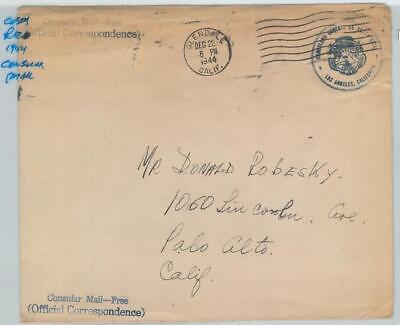 COSTA
RICA
1944
CONSULAR
Consular Mail—Free
(Official Correspondence)
GLENDALE
DEC 22
6 PM
1944
CALIF.
LOS ANGELES, CALIFORNIA
MR DONALD ROBESKY.
1060 Lincoln Ave.
Palo Alto.
Calif.
Consular Mail—Free
(Official Correspondence)